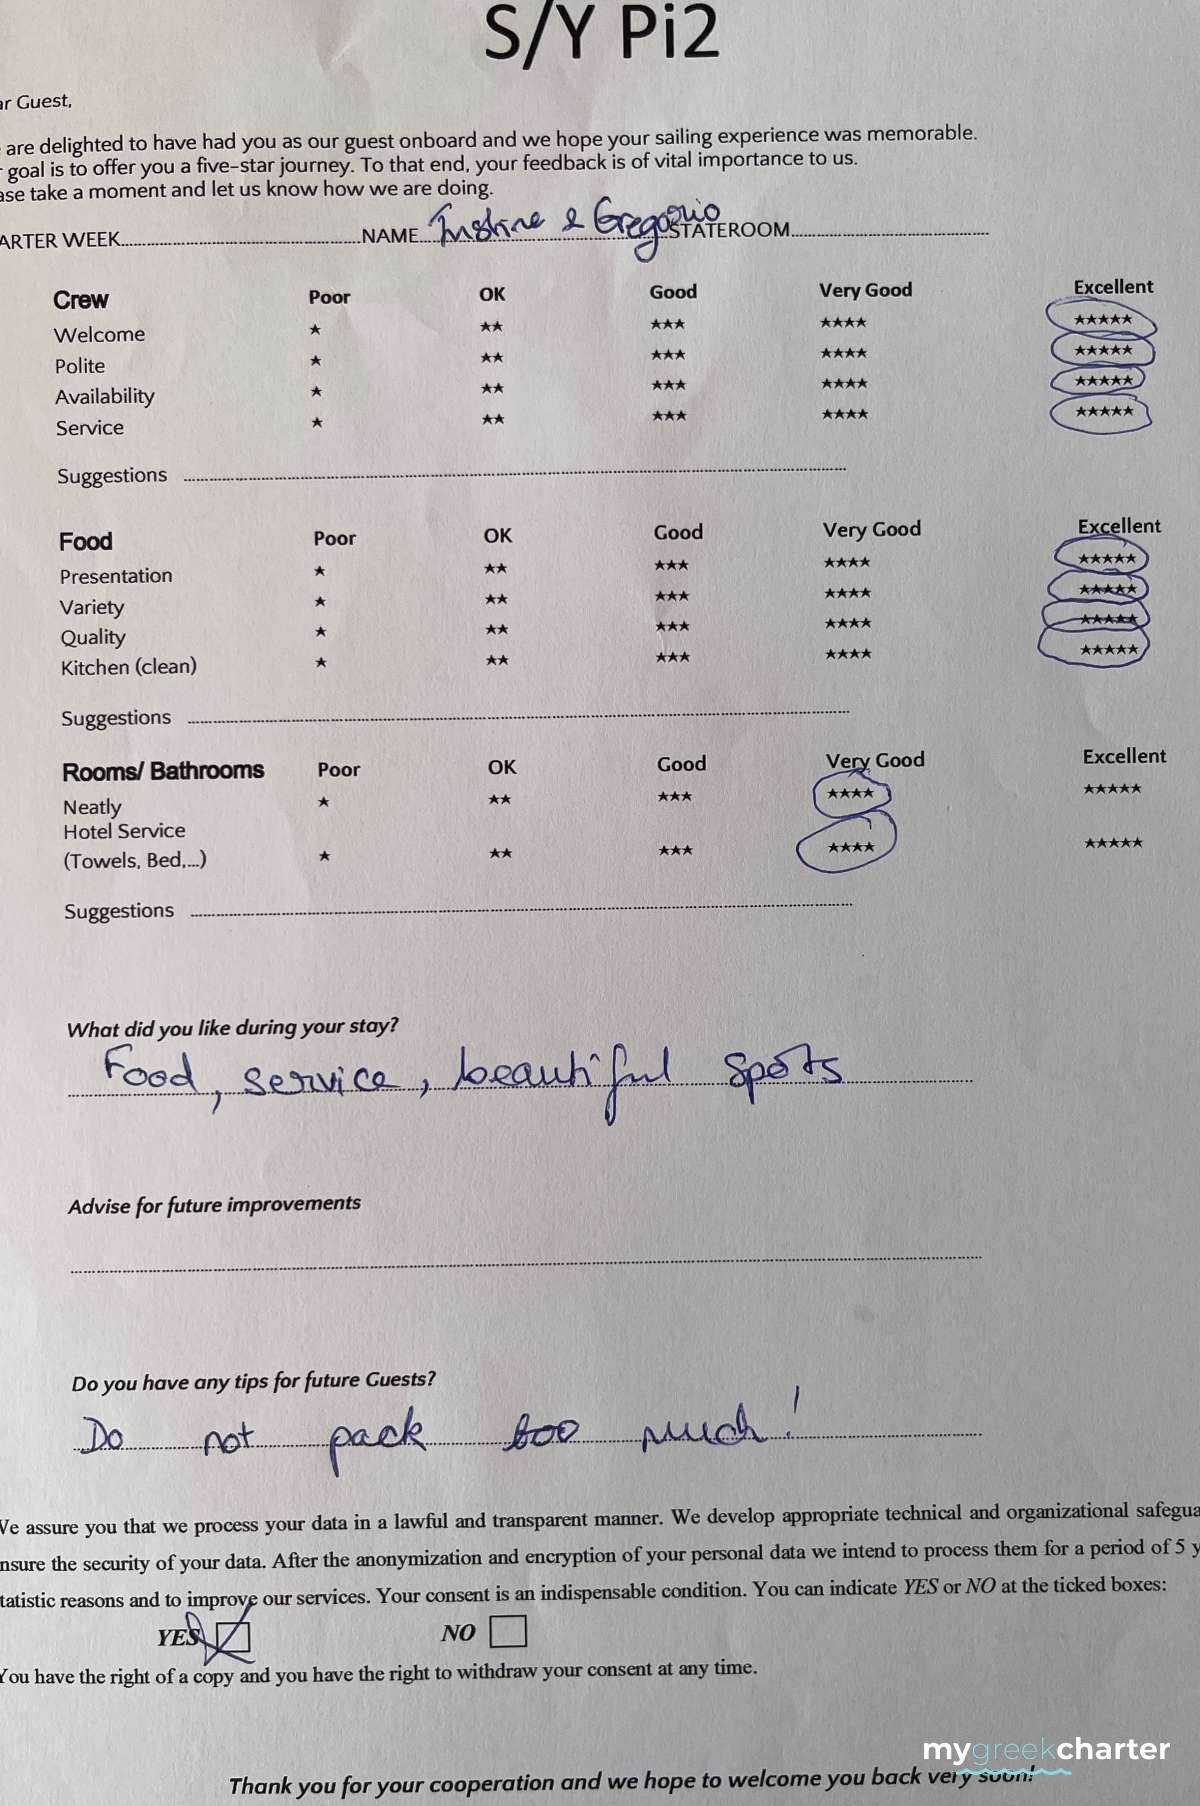 S/Y Pi2
ar Guest,
are delighted to have had you as our guest onboard and we hope your sailing experience was memorable.
goal is to offer you a five-star journey. To that end, your feedback is of vital importance to us.
ase take a moment and let us know how we are doing.
ARTER WEEK NAME Justine & Gregorio STATEROOM
Crew Poor OK Good Very Good Excellent
Welcome ★ ★★ ★★★ ★★★★ ★★★★★
Polite ★ ★★ ★★★ ★★★★ ★★★★★
Availability ★ ★★ ★★★ ★★★★ ★★★★★
Service ★ ★★ ★★★ ★★★★ ★★★★★
Suggestions
Food Poor OK Good Very Good Excellent
Presentation ★ ★★ ★★★ ★★★★ ★★★★★
Variety ★ ★★ ★★★ ★★★★ ★★★★★
Quality ★ ★★ ★★★ ★★★★ ★★★★★
Kitchen (clean) ★ ★★ ★★★ ★★★★ ★★★★★
Suggestions
Rooms/ Bathrooms Poor OK Good Very Good Excellent
Neatly ★ ★★ ★★★ ★★★★ ★★★★★
Hotel Service
(Towels, Bed,...) ★ ★★ ★★★ ★★★★ ★★★★★
Suggestions
What did you like during your stay?
Food, service, beautiful spots
Advise for future improvements
Do you have any tips for future Guests?
Do not pack too much!
We assure you that we process your data in a lawful and transparent manner. We develop appropriate technical and organizational safegua
nsure the security of your data. After the anonymization and encryption of your personal data we intend to process them for a period of 5 y
tatistic reasons and to improve our services. Your consent is an indispensable condition. You can indicate YES or NO at the ticked boxes:
YES NO
You have the right of a copy and you have the right to withdraw your consent at any time.
mygreekcharter
Thank you for your cooperation and we hope to welcome you back very soon!